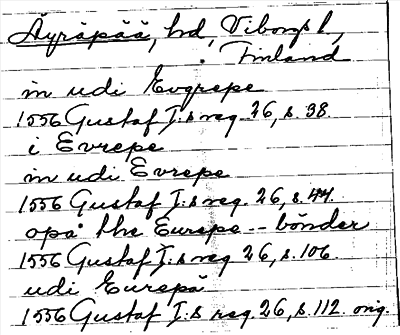 Äyräpää, hd, Viborgs l,
Finland
in udi Evgrepe
1556 Gustaf I:s reg. 26, s. 38.
i Evrepe
in udi Evrepe
1556 Gustaf I:s reg. 26, s. 44.
opå the Europe -- bönder
1556 Gustaf I:s reg 26, s. 106.
udi Eurepä
1556 Gustaf I:s reg. 26, s. 112. orig.